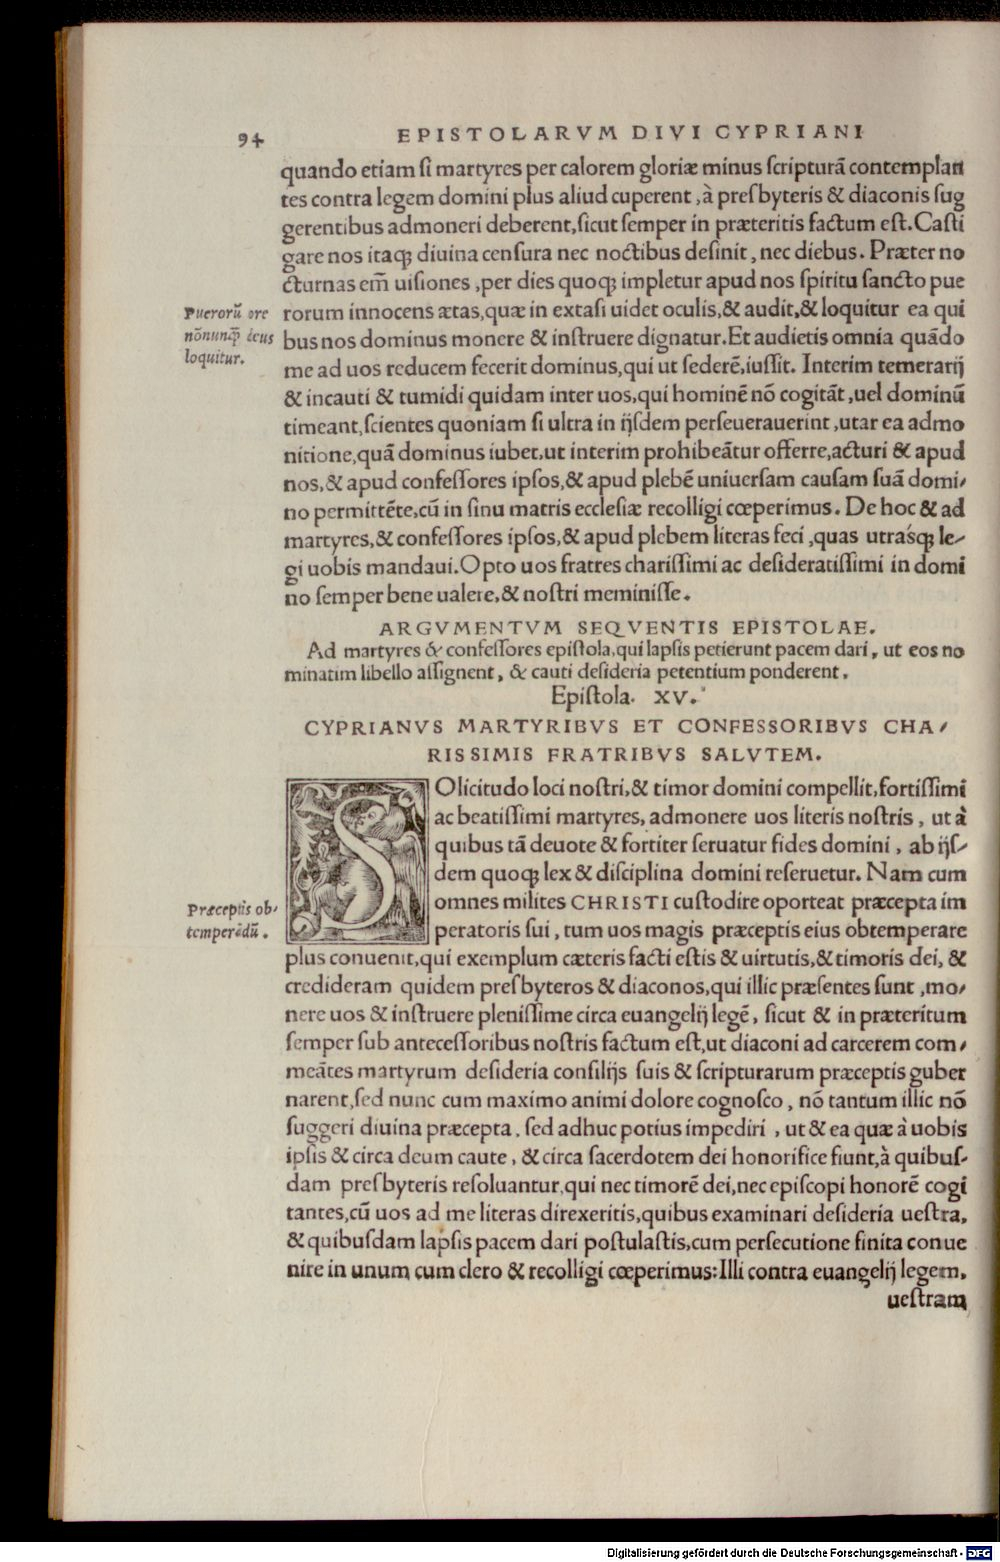 94 EPISTOLARVM DIVI CYPRIANI
quando etiam si martyres per calorem gloriæ minus scripturã contemplan
tes contra legem domini plus aliud cuperent, à presbyteris & diaconis sug
gerentibus admoneri deberent, sicut semper in præteritis factum est. Casti
gare nos itaq; diuina censura nec noctibus desinit, nec diebus. Præter no
cturnas em̃ uisiones, per dies quoq; impletur apud nos spiritu sancto pue
Puerorũ ore
nõnunq̃ deus
loquitur.
rorum innocens ætas, quæ in extasi uidet oculis, & audit, & loquitur ea qui
bus nos dominus monere & instruere dignatur. Et audietis omnia quãdo
me ad uos reducem fecerit dominus, qui ut sederẽ, iussit. Interim temerarij
& incauti & tumidi quidam inter uos, qui hominẽ nõ cogitãt, uel dominũ
timeant, scientes quoniam si ultra in ijsdem perseuerauerint, utar ea admo
nitione, quã dominus iubet, ut interim prohibeãtur offerre, acturi & apud
nos, & apud confessores ipsos, & apud plebẽ uniuersam causam suã domi-
no permittẽte, cũ in sinu matris ecclesiæ recolligi cœperimus. De hoc & ad
martyres, & confessores ipsos, & apud plebem literas feci, quas utrasq; le-
gi uobis mandaui. Opto uos fratres charissimi ac desideratissimi in domi
no semper bene ualere, & nostri meminisse.
ARGVMENTVM SEQVENTIS EPISTOLAE.
Ad martyres & confessores epistola, qui lapsis petierunt pacem dari, ut eos no
minatim libello assignent, & cauti desideria petentium ponderent.
Epistola. XV.
CYPRIANVS MARTYRIBVS ET CONFESSORIBVS CHA-
RISSIMIS FRATRIBVS SALVTEM.
SOlicitudo loci nostri, & timor domini compellit, fortissimi
ac beatissimi martyres, admonere uos literis nostris, ut à
quibus tã deuote & fortiter seruatur fides domini, ab ijs-
dem quoq; lex & disciplina domini reseruetur. Nam cum
omnes milites CHRISTI custodire oporteat præcepta im
Præceptis ob-
temperẽdũ.
peratoris sui, tum uos magis præceptis eius obtemperare
plus conuenit, qui exemplum cæteris facti estis & uirtutis, & timoris dei, &
credideram quidem presbyteros & diaconos, qui illic præsentes sunt, mo-
nere uos & instruere plenissime circa euangelij legẽ, sicut & in præteritum
semper sub antecessoribus nostris factum est, ut diaconi ad carcerem com-
meãtes martyrum desideria consilijs suis & scripturarum præceptis guber
narent, sed nunc cum maximo animi dolore cognosco, nõ tantum illic nõ
suggeri diuina præcepta, sed adhuc potius impediri, ut & ea quæ à uobis
ipsis & circa deum caute, & circa sacerdotem dei honorifice fiunt, à quibus-
dam presbyteris resoluantur, qui nec timorẽ dei, nec episcopi honorẽ cogi
tantes, cũ uos ad me literas direxeritis, quibus examinari desideria uestra,
& quibusdam lapsis pacem dari postulastis, cum persecutione finita conue
nire in unum cum clero & recolligi cœperimus: Illi contra euangelij legem,
uestram
Digitalisierung gefördert durch die Deutsche Forschungsgemeinschaft - DFG